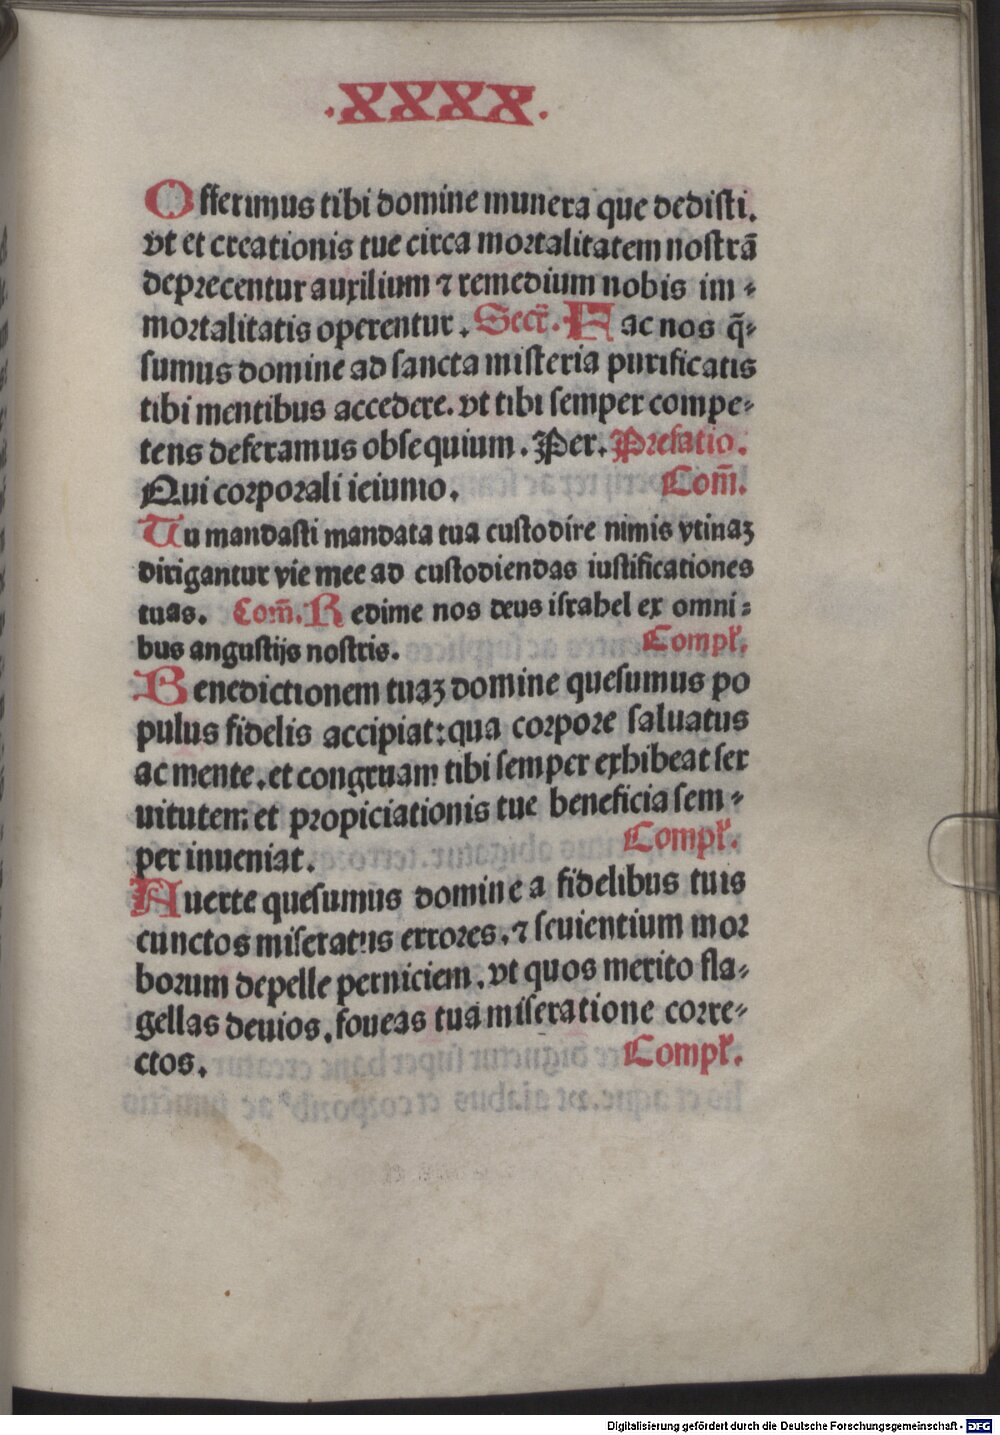 .XXXX.
Offerimus tibi domine munera que dedisti.
vt et creationis tue circa mortalitatem nostrā
deprecentur auxilium ⁊ remedium nobis im⸗
mortalitatis operentur. Secr̄. Hac nos q̄⸗
sumus domine ad sancta misteria purificatis
tibi mentibus accedere. vt tibi semper compe⸗
tens deferamus obsequium. Per. Prefatio.
Qui corporali ieiunio. Com̄.
Tu mandasti mandata tua custodire nimis vtinaꝫ
dirigantur vie mee ad custodiendas iustificationes
tuas. Com̄. Redime nos deus israhel ex omni⸗
bus angustijs nostris. Compl̄.
Benedictionem tuaꝫ domine quesumus po
pulus fidelis accipiat: qua corpore saluatus
ac mente. et congruam tibi semper exhibeat ser
uitutem et propiciationis tue beneficia sem⸗
per inueniat. Compl̄.
Auerte quesumus domine a fidelibus tuis
cunctos miseratus errores. ⁊ seuientium mor
borum depelle perniciem. vt quos merito fla⸗
gellas deuios. foueas tua miseratione corre⸗
ctos. Compl̄.
Digitalisierung gefördert durch die Deutsche Forschungsgemeinschaft - DFG